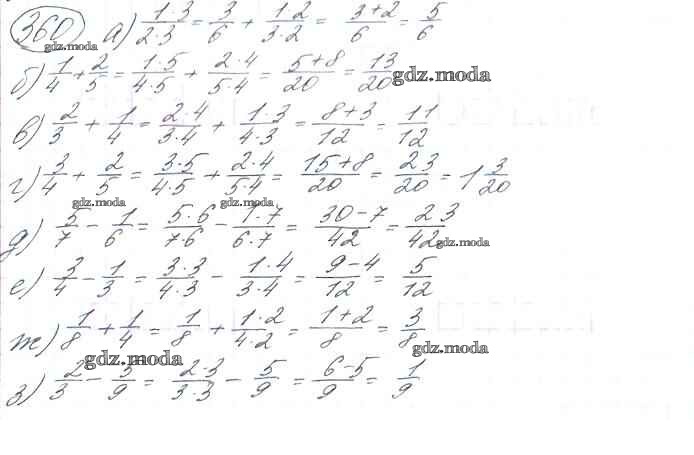 360 а) 1·3/2·3 = 3/6 + 1·2/3·2 = 3+2/6 = 5/6
gdz.moda
б) 1/4 + 2/5 = 1·5/4·5 + 2·4/5·4 = 5+8/20 = 13/20
gdz.moda
в) 2/3 + 1/4 = 2·4/3·4 + 1·3/4·3 = 8+3/12 = 11/12
г) 3/4 + 2/5 = 3·5/4·5 + 2·4/5·4 = 15+8/20 = 23/20 = 1 3/20
gdz.moda gdz.moda
д) 5/7 - 1/6 = 5·6/7·6 - 1·7/6·7 = 30-7/42 = 23/42
gdz.moda
е) 3/4 - 1/3 = 3·3/4·3 - 1·4/3·4 = 9-4/12 = 5/12
ж) 1/8 + 1/4 = 1/8 + 1·2/4·2 = 1+2/8 = 3/8
gdz.moda gdz.moda
з) 2/3 - 5/9 = 2·3/3·3 - 5/9 = 6-5/9 = 1/9